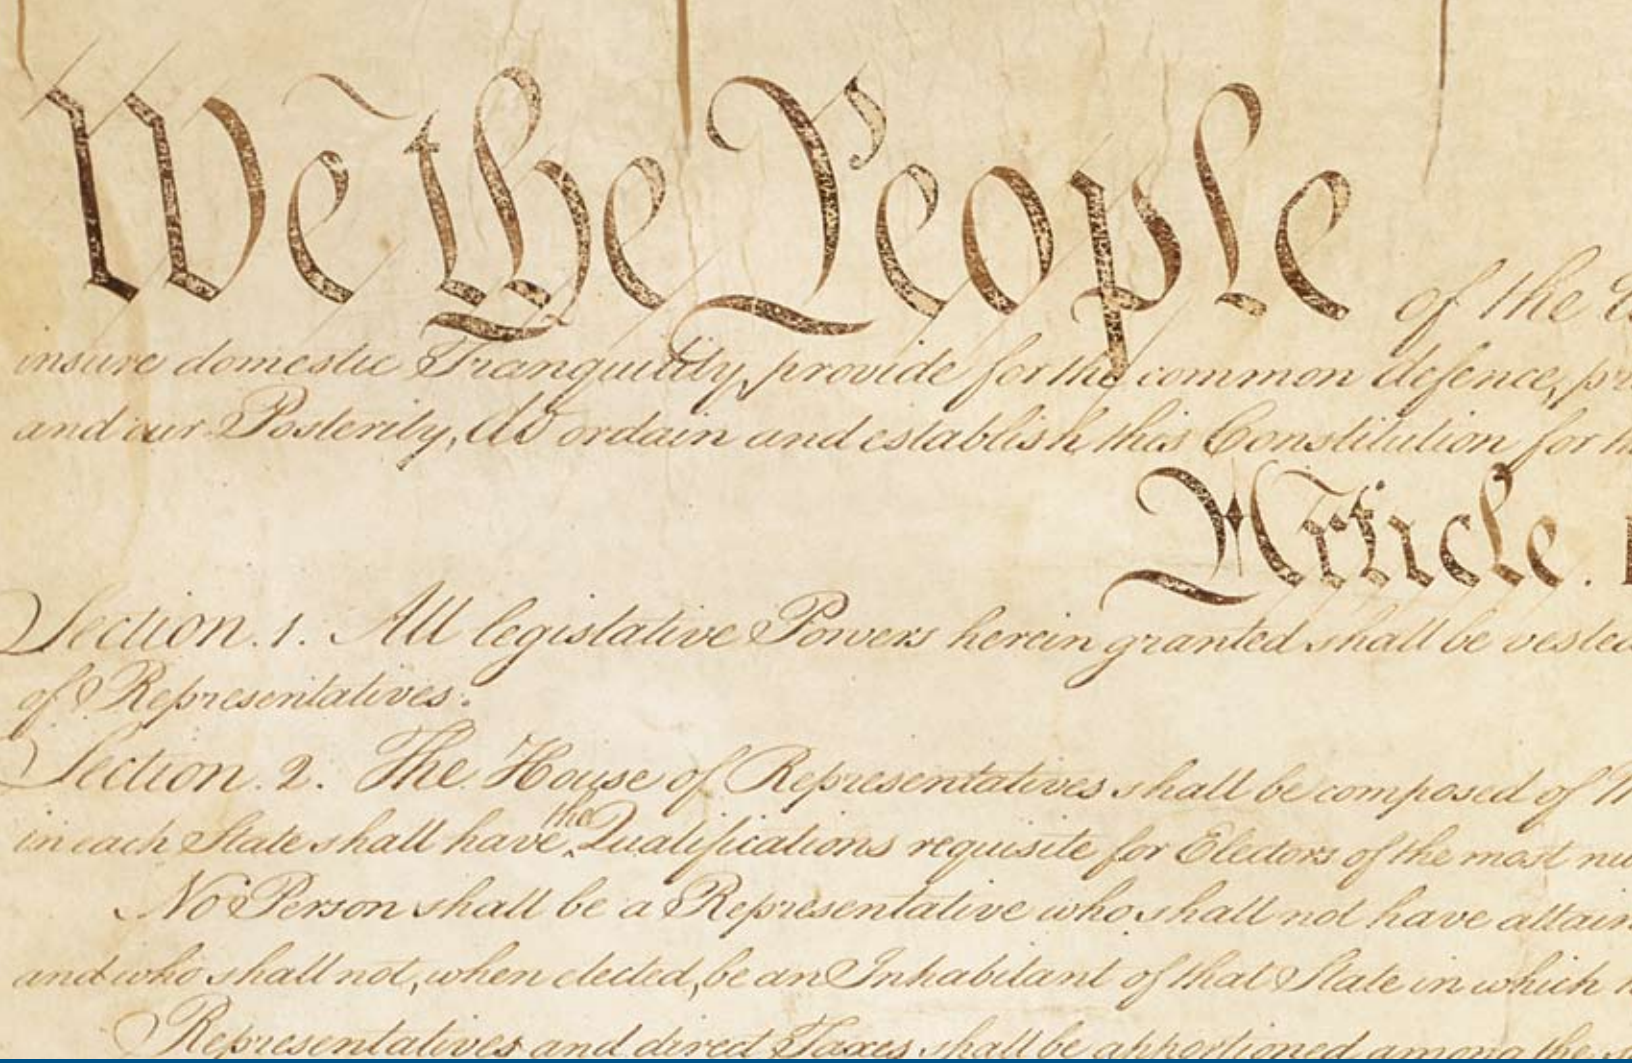 We the People of the
insure domestic Tranquility, provide for the common defence,
and our Posterity, do ordain and establish this Constitution for
Article.
Section. 1. All legislative Powers herein granted shall be vested
of Representatives.
Section. 2. The House of Representatives shall be composed of
the
in each State shall have Qualifications requisite for Electors of the most
No Person shall be a Representative who shall not have
and who shall not, when elected, be an Inhabitant of that State in which
Representatives and direct Taxes shall be apportioned among the